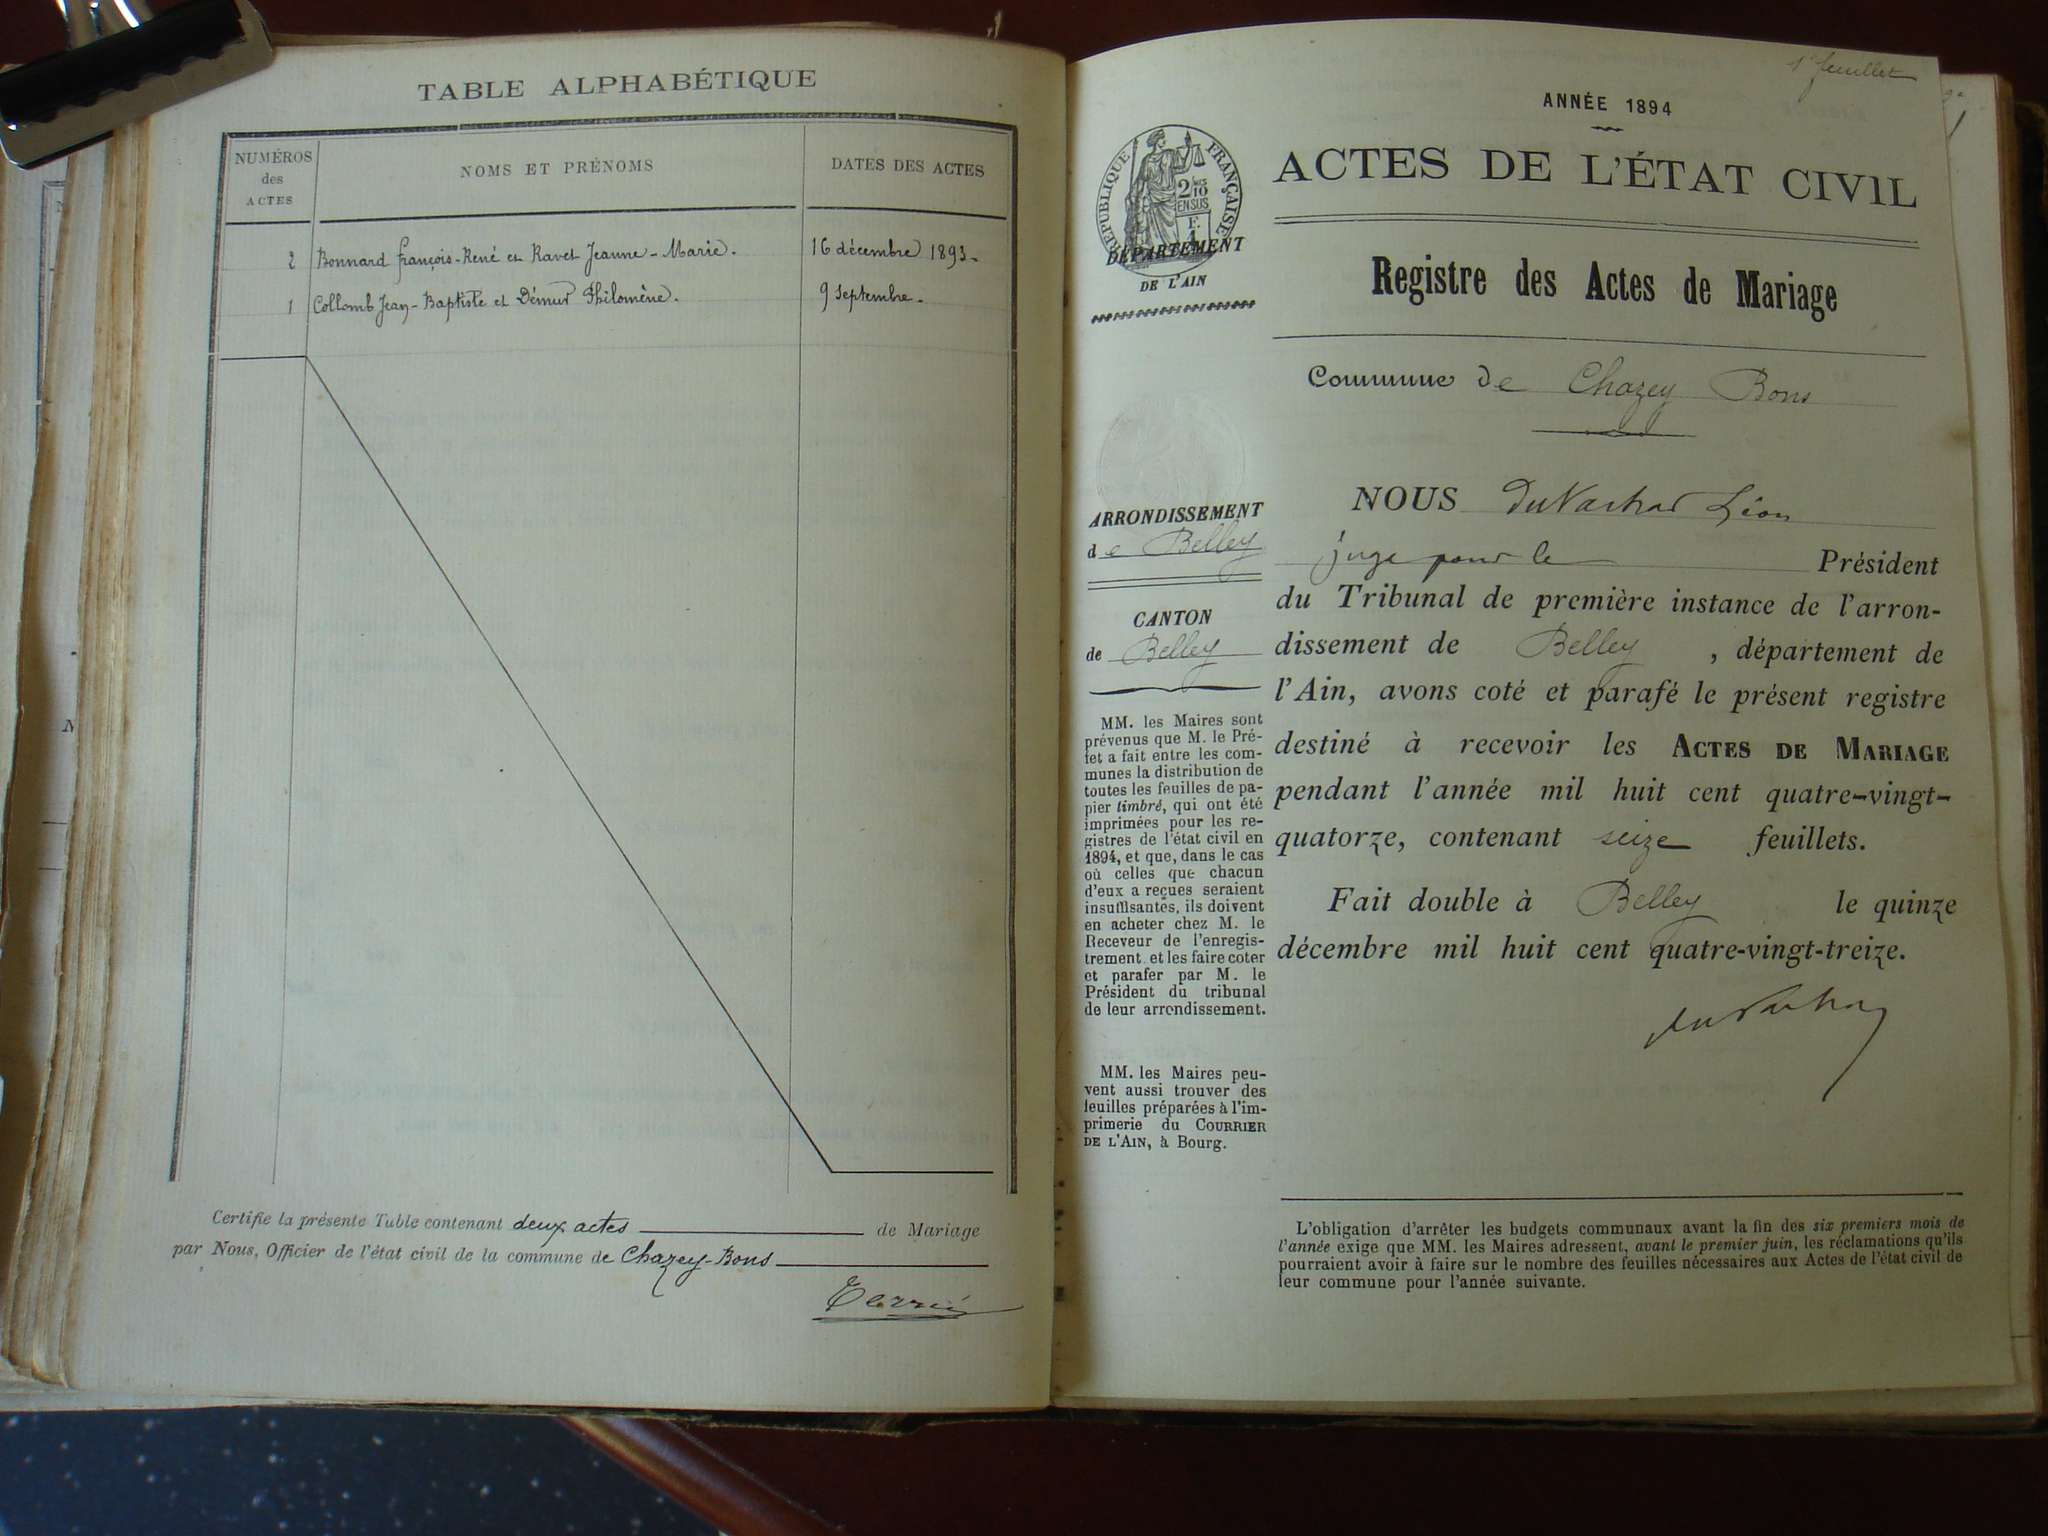 TABLE ALPHABÉTIQUE
NUMÉROS
des
ACTES
NOMS ET PRÉNOMS
DATES DES ACTES
2 Bonnard François-René et Ravet Jeanne-Marie. 16 décembre 1893.
1 Collomb Jean-Baptiste et Démur Philomène. 9 septembre.
Certifie la présente Table contenant deux actes de Mariage
par Nous, Officier de l'état civil de la commune de Chazey-Bons
1er feuillet
ANNÉE 1894
ACTES DE L'ÉTAT CIVIL
RÉPUBLIQUE FRANÇAISE
2/10
EN SUS
DÉPARTEMENT
DE L'AIN
Registre des Actes de Mariage
Commune de Chazey Bons
ARRONDISSEMENT
de Belley
CANTON
de Belley
MM. les Maires sont
prévenus que M. le Pré-
fet a fait entre les com-
munes la distribution de
toutes les feuilles de pa-
pier timbré, qui ont été
imprimées pour les re-
gistres de l'état civil en
1894, et que, dans le cas
où celles que chacun
d'eux a reçues seraient
insuffisantes, ils doivent
en acheter chez M. le
Receveur de l'enregis-
trement et les faire coter
et parafer par M. le
Président du tribunal
de leur arrondissement.
MM. les Maires peu-
vent aussi trouver des
feuilles préparées à l'im-
primerie du COURRIER
DE L'AIN, à Bourg.
NOUS Léon
juge pour le Président
du Tribunal de première instance de l'arron-
dissement de Belley, département de
l'Ain, avons coté et parafé le présent registre
destiné à recevoir les ACTES DE MARIAGE
pendant l'année mil huit cent quatre-vingt-
quatorze, contenant seize feuillets.
Fait double à Belley le quinze
décembre mil huit cent quatre-vingt-treize.
L'obligation d'arrêter les budgets communaux avant la fin des six premiers mois de
l'année exige que MM. les Maires adressent, avant le premier juin, les réclamations qu'ils
pourraient avoir à faire sur le nombre des feuilles nécessaires aux Actes de l'état civil de
leur commune pour l'année suivante.